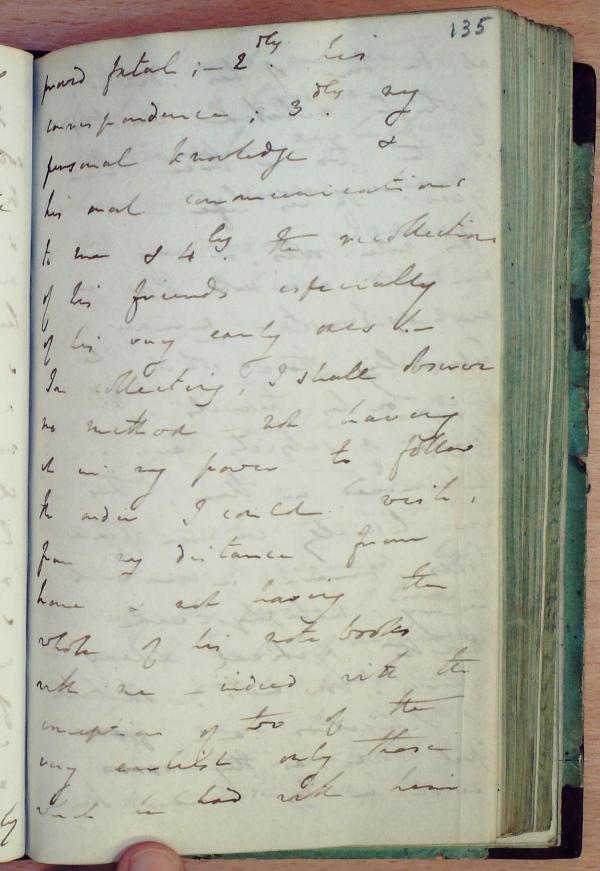 135
proved fatal; – 2dly. his
correspondence; 3dly. my
personal knowledge &
his oral communications
to me & 4ly. the recollections
of his friends especially
of his very early ones. –
In collecting, I shall observe
no method – not having
it in my power to follow
the order I could wish,
from my distance from
home & not having the
whole of his note books
with me – indeed with the
exception of two of the
very earliest only those
which he had with him